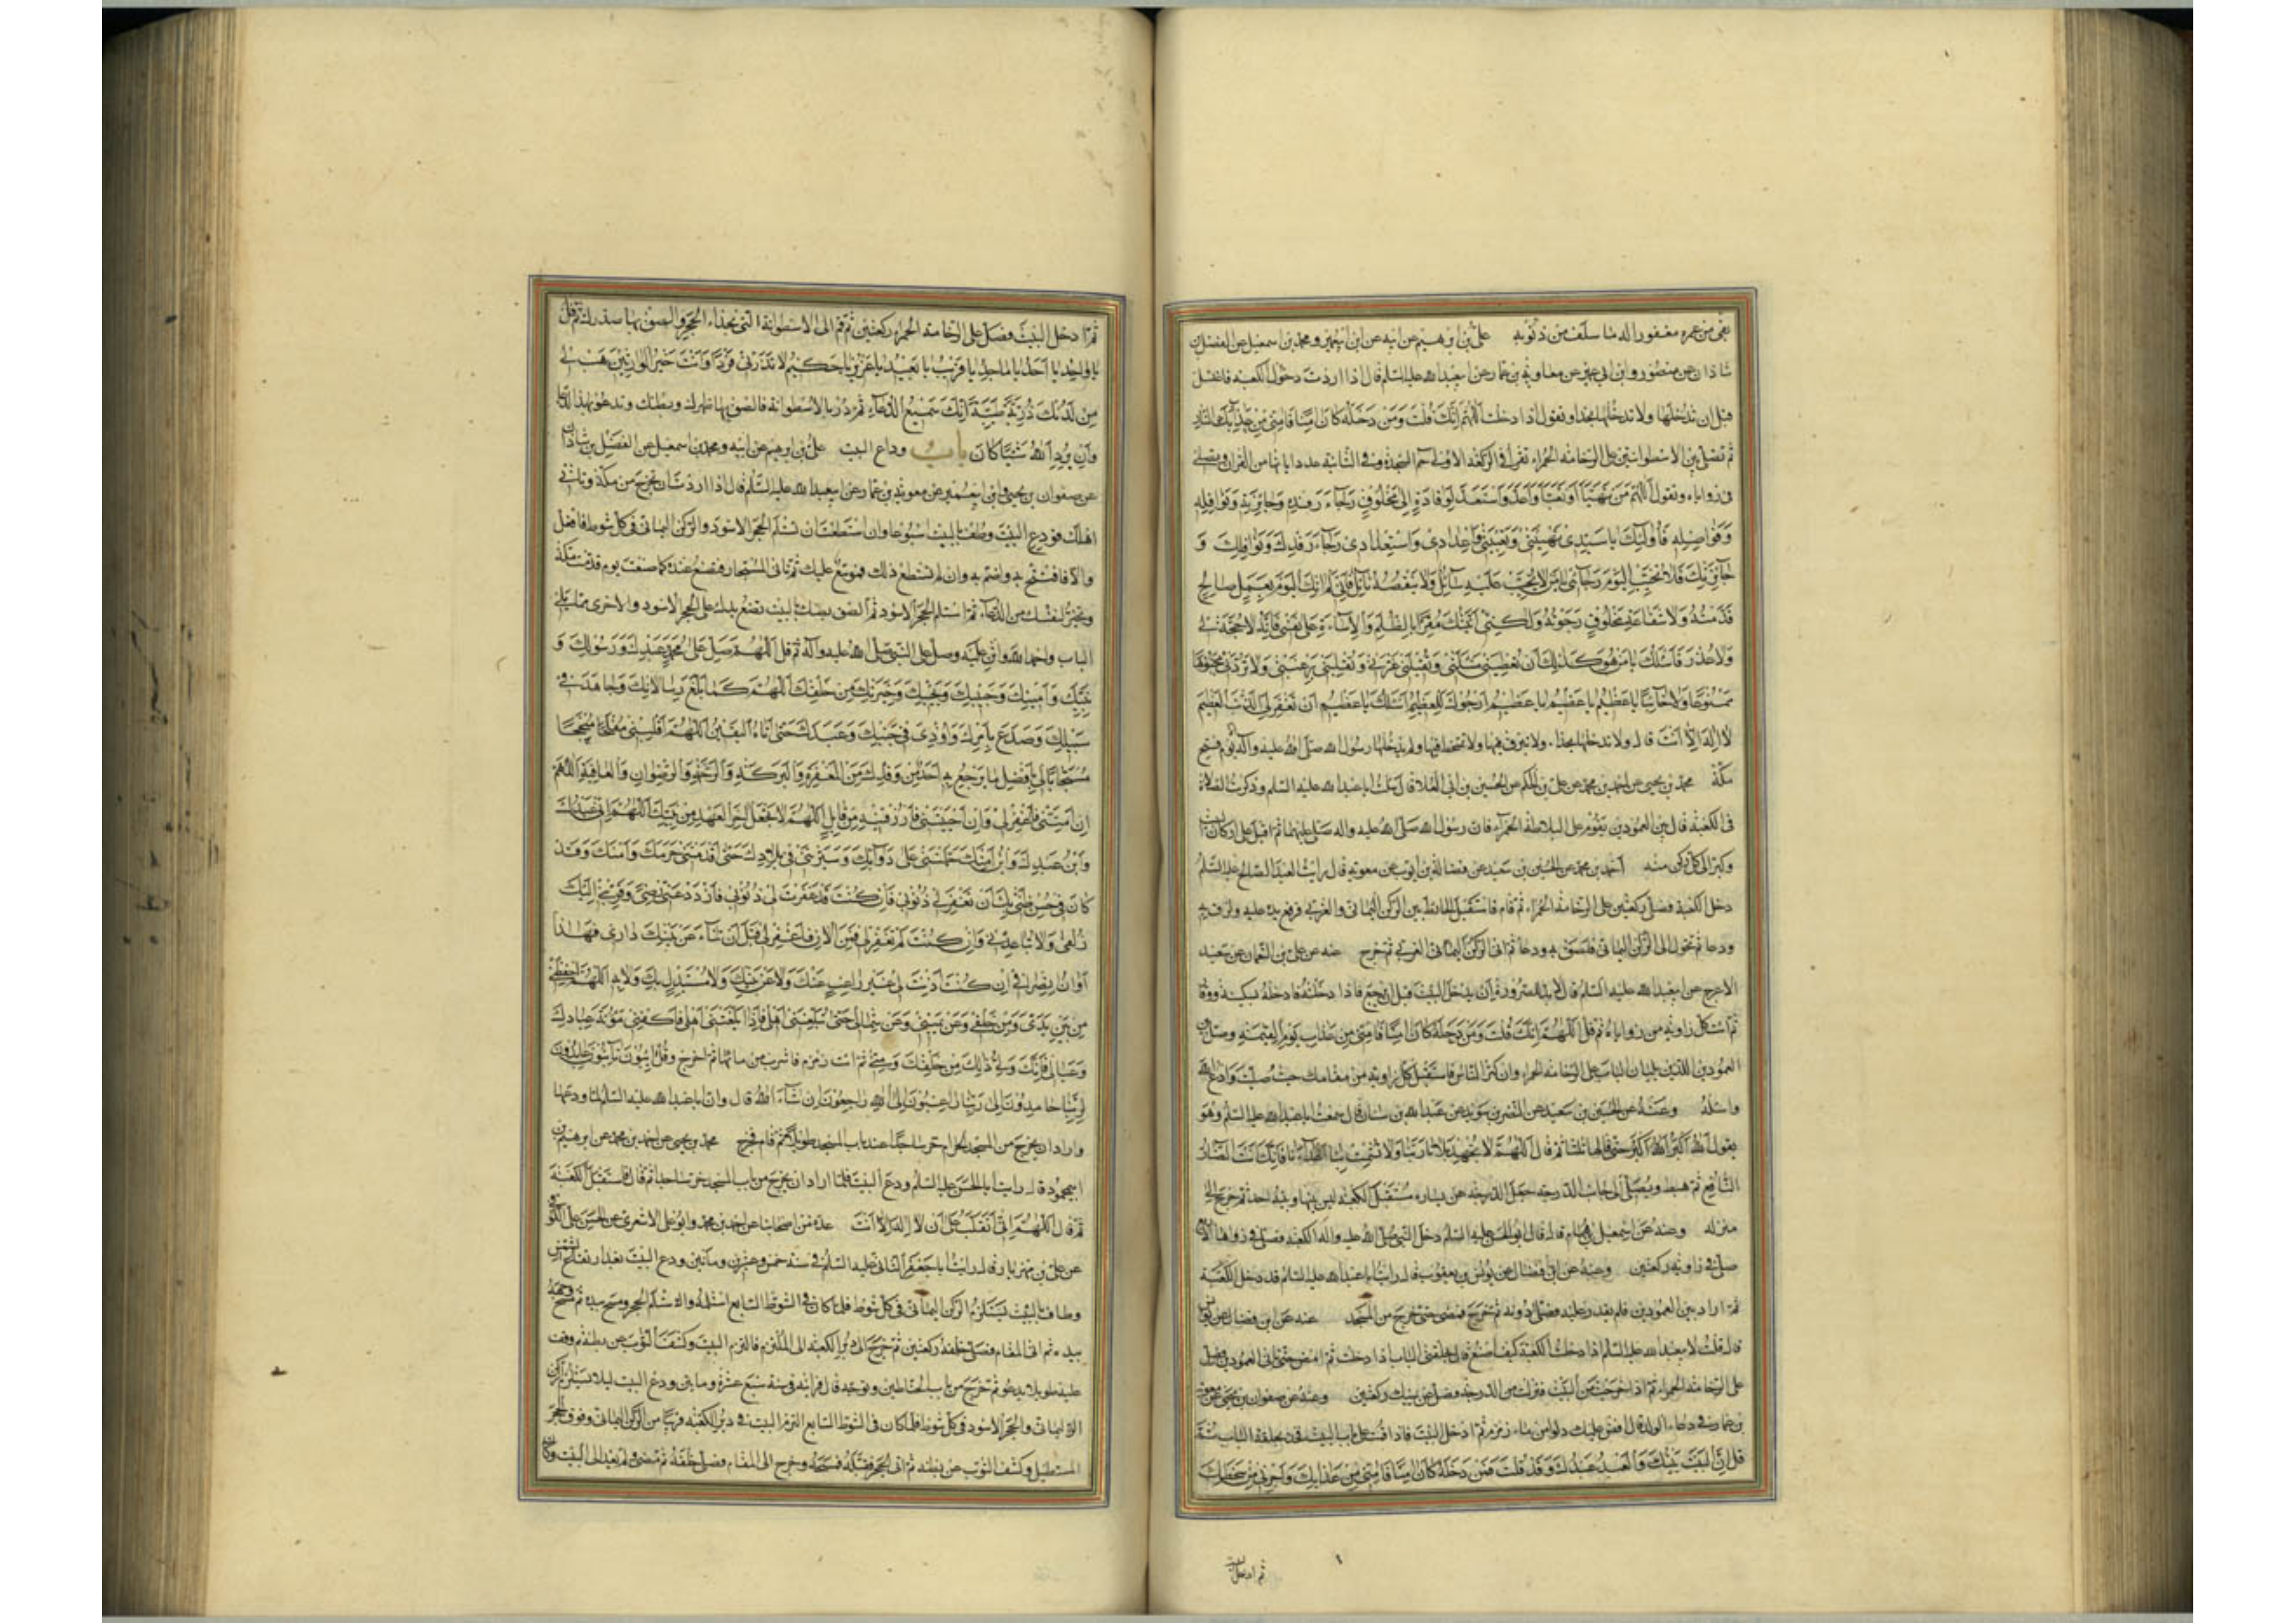 بقى من عمره مغفورا له ما سلف من ذنوبه على بن ابرهيم عن ابيه عن ابن ابى عمير و محمد بن اسمعيل عن الفضل بن
شاذان عن صفوان وابن ابى عمير عن معاوية بن عمار عن ابيعبد الله عليه السلم قال اذا اردت دخول الكعبة فاغتسل
قبل ان تدخلها ولا تدخلها بحذاء وتقول اذا دخلت اَللّهُمَّ اِنَّكَ قُلْتَ وَمَنْ دَخَلَهُ كَانَ آمِنًا فَآمِنّى مِنْ عَذابِ النَّارِ
ثم تصلى بين الاسطوانتين على الرخامة الحمراء تقرأ فى الركعة الاولى حم السجدة وفى الثانية عدد اياتها من القران وتصلى
فى زواياه وتقول اَللّهُمَّ مَنْ تَهَيَّأَ اَوْ تَعَبَّأَ وَاَعَدَّ وَاسْتَعَدَّ لِوِفَادَةٍ اِلى مَخْلُوقٍ رَجَاءَ رَفْدِهِ وَجَائِزَتِهِ وَنَوَافِلِهِ
وَفَوَاضِلِهِ فَاِلَيْكَ يَا سَيِّدى تَهْيِئَتى وَتَعْبِئَتى وَاِعْدَادى وَاسْتِعْدَادى رَجَاءَ رَفْدِكَ وَنَوَافِلِكَ وَ
جَائِزَتِكَ فَلا تُخَيِّبِ الْيَوْمَ رَجَائى يَا مَنْ لا يَخيبُ عَلَيْهِ سَائِلٌ وَلا يَنْقُصُهُ نَائِلٌ فَاِنّى لَمْ اٰتِكَ الْيَوْمَ بِعَمَلٍ صَالِحٍ
قَدَّمْتُهُ وَلا شَفَاعَةِ مَخْلُوقٍ رَجَوْتُهُ وَلكِنّى اَتَيْتُكَ مُقِرًّا بِالظُّلْمِ وَالْاِسَاءَةِ عَلى نَفْسى فَاِنَّهُ لا حُجَّةَ لى
وَلا عُذْرَ فَاَسْئَلُكَ يَا مَنْ هُوَ كَذلِكَ اَنْ تُعْطِيَنى مَسْئَلَتى وَتُقيلَنى عَثْرَتى وَتَقْلِبَنى بِرَغْبَتى وَلا تَرُدَّنى مَجْبُوهًا
مَمْنُوعًا وَلا خَائِبًا يَا عَظيمُ يَا عَظيمُ يَا عَظيمُ اَرْجُوكَ لِلْعَظيمِ اَسْئَلُكَ يَا عَظيمُ اَنْ تَغْفِرَ لِىَ الذَّنْبَ الْعَظيمَ
لا اِلهَ اِلّا اَنْتَ قال ولا تدخلها بحذاء ولا تبزق فيها ولا تمتخط فيها ولم يدخلها رسول الله صلى الله عليه وآله الا يوم فتح
مكة محمد بن يحيى عن احمد بن محمد عن على بن الحكم عن الحسين بن ابى العلا قال سئلت اباعبد الله عليه السلم وذكرت الصلاة
فى الكعبة قال بين العمودين تقوم على البلاطة الحمراء فان رسول الله صلى الله عليه واله صلى عليها ثم اقبل على اركان البيت
وكبر الى كل ركن منه احمد بن محمد عن الحسين بن سعيد عن فضالة بن ايوب عن معوية قال رايت العبد الصالح عليه السلم
دخل الكعبة فصلى ركعتين على الرخامة الحمراء ثم قام فاستقبل الحائط بين الركن اليمانى والغربى فرفع يده عليه ولزق به
ودعا ثم تحول الى الركن اليمانى فلصق به ودعا ثم اتى الركن الغربى ثم خرج عنه عن على بن النعمان عن سعيد
الاعرج عن ابيعبد الله عليه السلم قال لا بد للصرورة ان يدخل البيت قبل ان يرجع فاذا دخلته فادخله بسكينة ووقار
ثم ائت كل زاوية من زواياه ثم قل اَللّهُمَّ اِنَّكَ قُلْتَ وَمَنْ دَخَلَهُ كَانَ آمِنًا فَآمِنّى مِنْ عَذابِ يَوْمِ الْقِيمَةِ وصل بين
العمودين اللذين يليان الباب على الرخامة الحمراء وان كثر الناس فاستقبل كل زاوية من مقامك حيث صليت وادع الله
واسئله وعنه عن الحسين بن سعيد عن النضر بن سويد عن عبد الله بن سنان قال سمعت اباعبد الله عليه السلم وهو
يقول اَللهُ اَكْبَرُ اَللهُ اَكْبَرُ حتى قالها ثلثا ثم قال اَللّهُمَّ لا تُجْهِدْ بَلاءَنَا رَبَّنَا وَلا تُشْمِتْ بِنَا اَعْدَاءَنَا فَاِنَّكَ اَنْتَ الضَّارُّ
النَّافِعُ ثم هبط فصلى الى جانب الدرجة جعل الدرجة عن يساره مستقبل الكعبة ليس بينها وبينه احد ثم خرج الى
منزله وعنه عن اسمعيل بن همام قال قال ابو الحسن عليه السلم دخل النبى صلى الله عليه واله الكعبة فصلى فى زواياها الاربع
صلى فى زاوية ركعتين وعنه عن ابن فضال عن يونس بن يعقوب قال رايت اباعبد الله عليه السلم قد دخل الكعبة
ثم اراد بين العمودين فلم يقدر عليه فصلى دونه ثم خرج فمضى حتى خرج من المسجد عنه عن ابن فضال عن يونس
قال قلت لابيعبد الله عليه السلم اذا دخلت الكعبة كيف اصنع قال خذ بحلقتى الباب اذا دخلت ثم امض حتى تاتى العمودين فصل
على الرخامة الحمراء ثم اذا خرجت من البيت فنزلت من الدرجة فصل عن يمينك ركعتين وعنه عن صفوان بن يحيى عن معوية
بن عمار فى دعاء الولد قال افض عليك دلوا من ماء زمزم ثم ادخل البيت فاذا قمت على باب البيت فخذ بحلقة الباب ثم
قل اِنَّ الْبَيْتَ بَيْتُكَ وَالْعَبْدَ عَبْدُكَ وَقَدْ قُلْتَ مَنْ دَخَلَهُ كَانَ آمِنًا فَآمِنّى مِنْ عَذابِكَ وَاَجِرْنى مِنْ سَخَطِكَ
ثم ادخل البيت
ثم ادخل البيت فصل على الرخامة الحمراء ركعتين ثم قم الى الاسطوانة التى بحذاء الحجر والصق بها صدرك ثم قل
يَا وَاحِدُ يَا اَحَدُ يَا مَاجِدُ يَا قَريبُ يَا بَعيدُ يَا عَزيزُ يَا حَكيمُ لا تَذَرْنى فَرْدًا وَاَنْتَ خَيْرُ الْوَارِثينَ هَبْ لى
مِنْ لَدُنْكَ ذُرِّيَّةً طَيِّبَةً اِنَّكَ سَميعُ الدُّعَاءِ ثم در بالاسطوانة فالصق بها ظهرك وبطنك وتدعو بهذا الدعاء
وان يُرِدِ اللهُ شَيْئًا كَانَ باب وداع البيت على بن ابرهيم عن ابيه ومحمد بن اسمعيل عن الفضل بن شاذان
عن صفوان بن يحيى وابن ابيعمير عن معوية بن عمار عن ابيعبد الله عليه السلم قال اذا اردت ان تخرج من مكة وتاتى
اهلك فودع البيت وطف بالبيت اسبوعا وان استطعت ان تستلم الحجر الاسود والركن اليمانى فى كل شوط فافعل
والا فافتتح به واختم به وان لم تستطع ذلك فموسع عليك ثم تاتى المستجار فتصنع عنده كما صنعت يوم قدمت مكة
وتخير لنفسك من الدعاء ثم استلم الحجر الاسود ثم الصق بطنك بالبيت تضع يدك على الحجر الاسود والاخرى مما يلى
الباب واحمد الله واثن عليه وصل على النبى صلى الله عليه وآله ثم قل اَللّهُمَّ صَلِّ عَلى مُحَمَّدٍ عَبْدِكَ وَرَسُولِكَ وَ
نَبِيِّكَ وَاَمينِكَ وَحَبيبِكَ وَنَجيِّكَ وَخِيَرَتِكَ مِنْ خَلْقِكَ اَللّهُمَّ كَمَا بَلَّغَ رِسَالاتِكَ وَجَاهَدَ فى
سَبيلِكَ وَصَدَعَ بِاَمْرِكَ وَاُوذِىَ فى جَنْبِكَ وَعَبَدَكَ حَتّى اَتَاهُ الْيَقينُ اَللّهُمَّ اقْلِبْنى مُفْلِحًا مُنْجِحًا
مُسْتَجَابًا لى بِاَفْضَلِ مَا يَرْجِعُ بِهِ اَحَدٌ مِنْ وَفْدِكَ مِنَ الْمَغْفِرَةِ وَالْبَرَكَةِ وَالرَّحْمَةِ وَالرِّضْوَانِ وَالْعَافِيَةِ اَللّهُمَّ
اِنْ اَمَتَّنى فَاغْفِرْ لى وَاِنْ اَحْيَيْتَنى فَارْزُقْنيهِ مِنْ قَابِلٍ اَللّهُمَّ لا تَجْعَلْهُ اٰخِرَ الْعَهْدِ مِنْ بَيْتِكَ اَللّهُمَّ اِنّى عَبْدُكَ
وَابْنُ عَبْدِكَ وَابْنُ اَمَتِكَ حَمَلْتَنى عَلى دَوَابِّكَ وَسَيَّرْتَنى فى بِلادِكَ حَتّى اَقْدَمْتَنى حَرَمَكَ وَاَمْنَكَ وَقَدْ
كَانَ فى حُسْنِ ظَنّى بِكَ اَنْ تَغْفِرَ لى ذُنُوبى فَاِنْ كُنْتَ قَدْ غَفَرْتَ لى ذُنُوبى فَازْدَدْ عَنّى رِضًى وَقَرِّبْنى اِلَيْكَ
زُلْفى وَلا تُبَاعِدْنى وَاِنْ كُنْتَ لَمْ تَغْفِرْ لى فَمِنَ الْاٰنِ فَاغْفِرْ لى قَبْلَ اَنْ تَنْأى عَنْ بَيْتِكَ دَارى فَهذَا
اَوَانُ انْصِرَافى اِنْ كُنْتَ اَذِنْتَ لى غَيْرَ رَاغِبٍ عَنْكَ وَلا عَنْ بَيْتِكَ وَلا مُسْتَبْدِلٍ بِكَ وَلا بِهِ اَللّهُمَّ احْفَظْنى
مِنْ بَيْنِ يَدَىَّ وَمِنْ خَلْفى وَعَنْ يَمينى وَعَنْ شِمَالى حَتّى تُبَلِّغَنى اَهْلى فَاِذَا بَلَّغْتَنى اَهْلى فَاكْفِنى مَؤُنَةَ عِبَادِكَ
وَعِيَالى فَاِنَّكَ وَلِىُّ ذلِكَ مِنْ خَلْقِكَ وَمِنّى ثم ائت زمزم فاشرب من مائها ثم اخرج وقل اٰئِبُونَ تَائِبُونَ عَابِدُونَ
لِرَبِّنَا حَامِدُونَ اِلى رَبِّنَا رَاغِبُونَ اِلَى اللهِ رَاجِعُونَ اِنْ شَاءَ اللهُ قال وان اباعبد الله عليه السلم لما ودعها
واراد ان يخرج من المسجد الحرام خر ساجدا عند باب المسجد طويلا ثم قام فخرج محمد بن يحيى عن احمد بن محمد عن ابرهيم بن
ابيمحمود قال رايت ابا الحسن عليه السلم ودع البيت فلما اراد ان يخرج من باب المسجد خر ساجدا ثم قام فاستقبل الكعبة
ثم قال اَللّهُمَّ اِنّى اَنْقَلِبُ عَلى اَنْ لا اِلهَ اِلّا اَنْتَ عدة من اصحابنا عن احمد بن محمد وابو على الاشعرى عن الحسن بن على الكوفى
عن على بن مهزيار قال رايت اباجعفر الثانى عليه السلم فى سنة خمس وعشرين ومأتين ودع البيت بعد ارتفاع الشمس
وطاف بالبيت يستلم الركن اليمانى فى كل شوط فلما كان فى الشوط السابع استلمه واستلم الحجر ومسح بيده ثم مسح وجهه
بيده ثم اتى المقام فصلى خلفه ركعتين ثم خرج الى دبر الكعبة الى الملتزم فالتزم البيت وكشف الثوب عن بطنه ثم وقف
عليه طويلا يدعو ثم خرج من باب الحناطين وتوجه قال فرايته فى سنة سبع عشرة ومايتين ودع البيت ليلا يستلم الركن
اليمانى والحجر الاسود فى كل شوط فلما كان فى الشوط السابع التزم البيت فى دبر الكعبة قريبا من الركن اليمانى وفوق الحجر
المستطيل وكشف الثوب عن بطنه ثم اتى الحجر فقبله ومسحه وخرج الى المقام فصلى خلفه ثم مضى ولم يعد الى البيت وكان